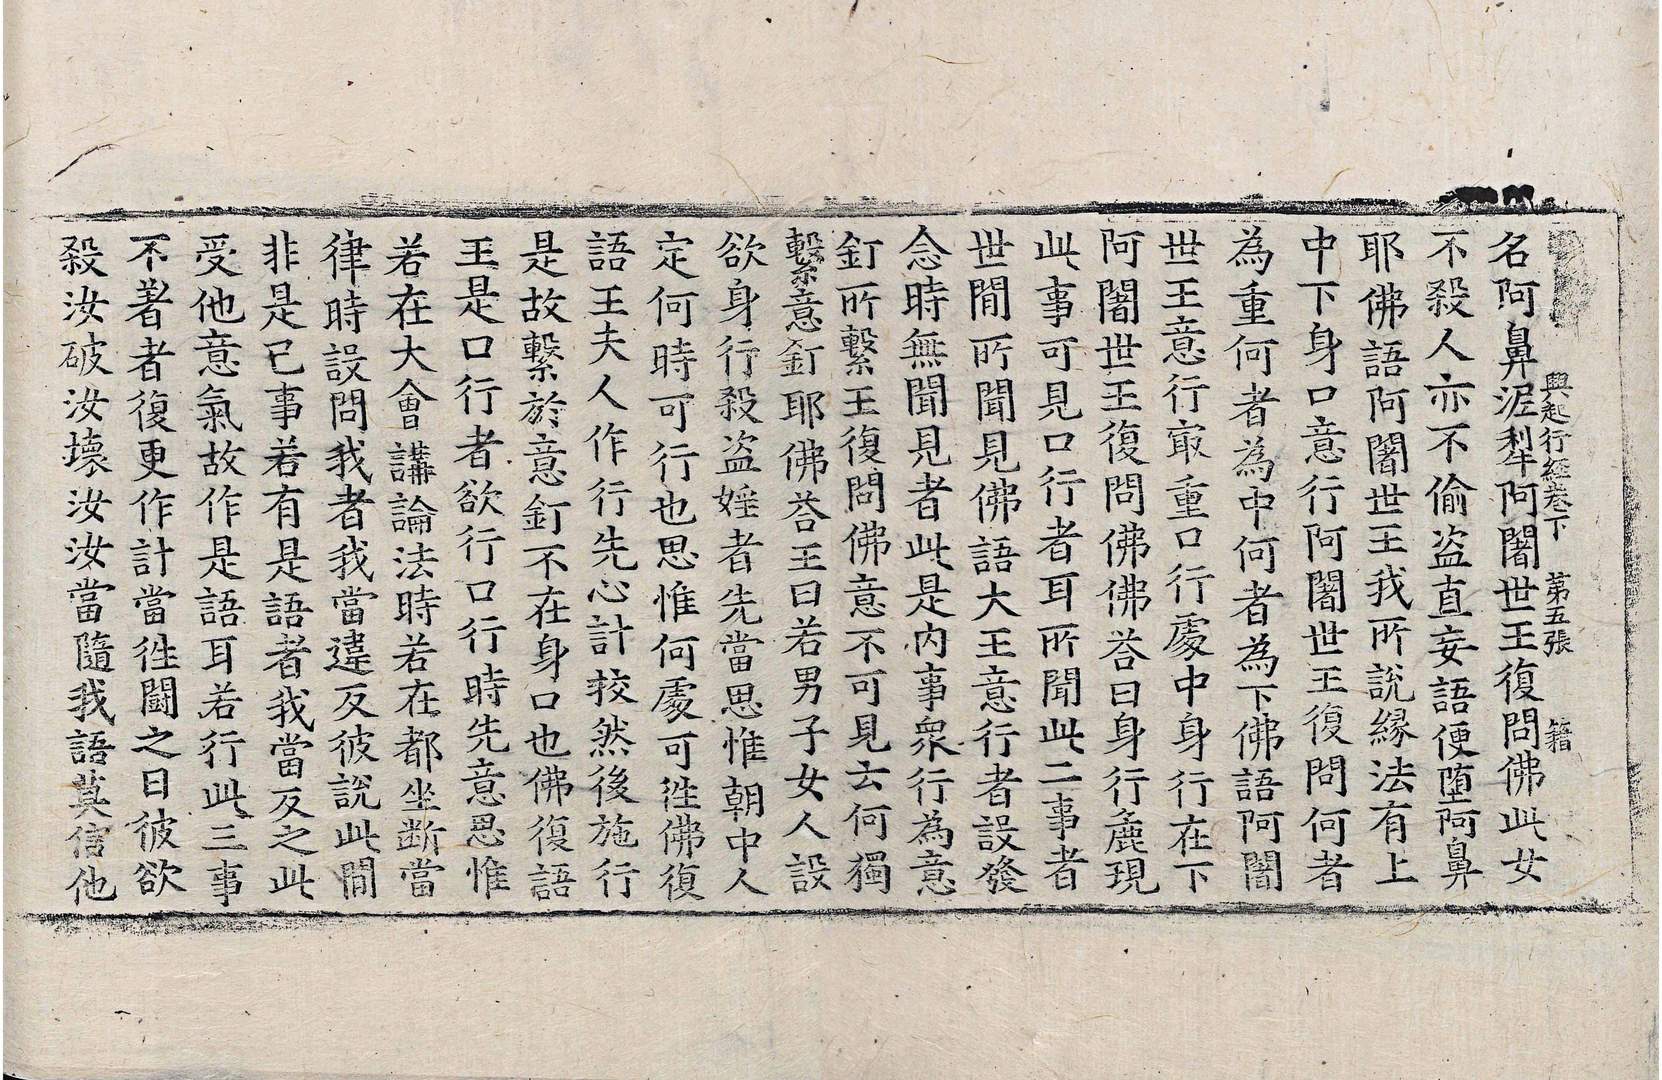 興起行経卷下 第五張 籍
名阿鼻泥犁阿闍世王復問佛此女
不殺人亦不偷盜直妄語便墮阿鼻
耶佛語阿闍世王我所說縁法有上
中下身口意行阿闍世王復問何者
為重何者為中何者為下佛語阿闍
世王意行冣重口行處中身行在下
阿闍世王復問佛佛荅曰身行麁現
此事可見口行者耳所聞此二事者
世閒所聞見佛語大王意行者設發
念時無聞見者此是內事衆行為意
釘所繫王復問佛意不可見云何獨
繫意釘耶佛荅王曰若男子女人設
欲身行殺盜婬者先當思惟朝中人
定何時可行也思惟何處可徃佛復
語王夫人作行先心計挍然後施行
是故繫於意釘不在身口也佛復語
王是口行者欲行口行時先意思惟
若在大會講論法時若在都坐斷當
律時設問我者我當違反彼說此閒
非是已事若有是語者我當反之此
受他意氣故作是語耳若行此三事
不著者復更作計當徃鬪之日彼欲
殺汝破汝壞汝汝當隨我語莫信他